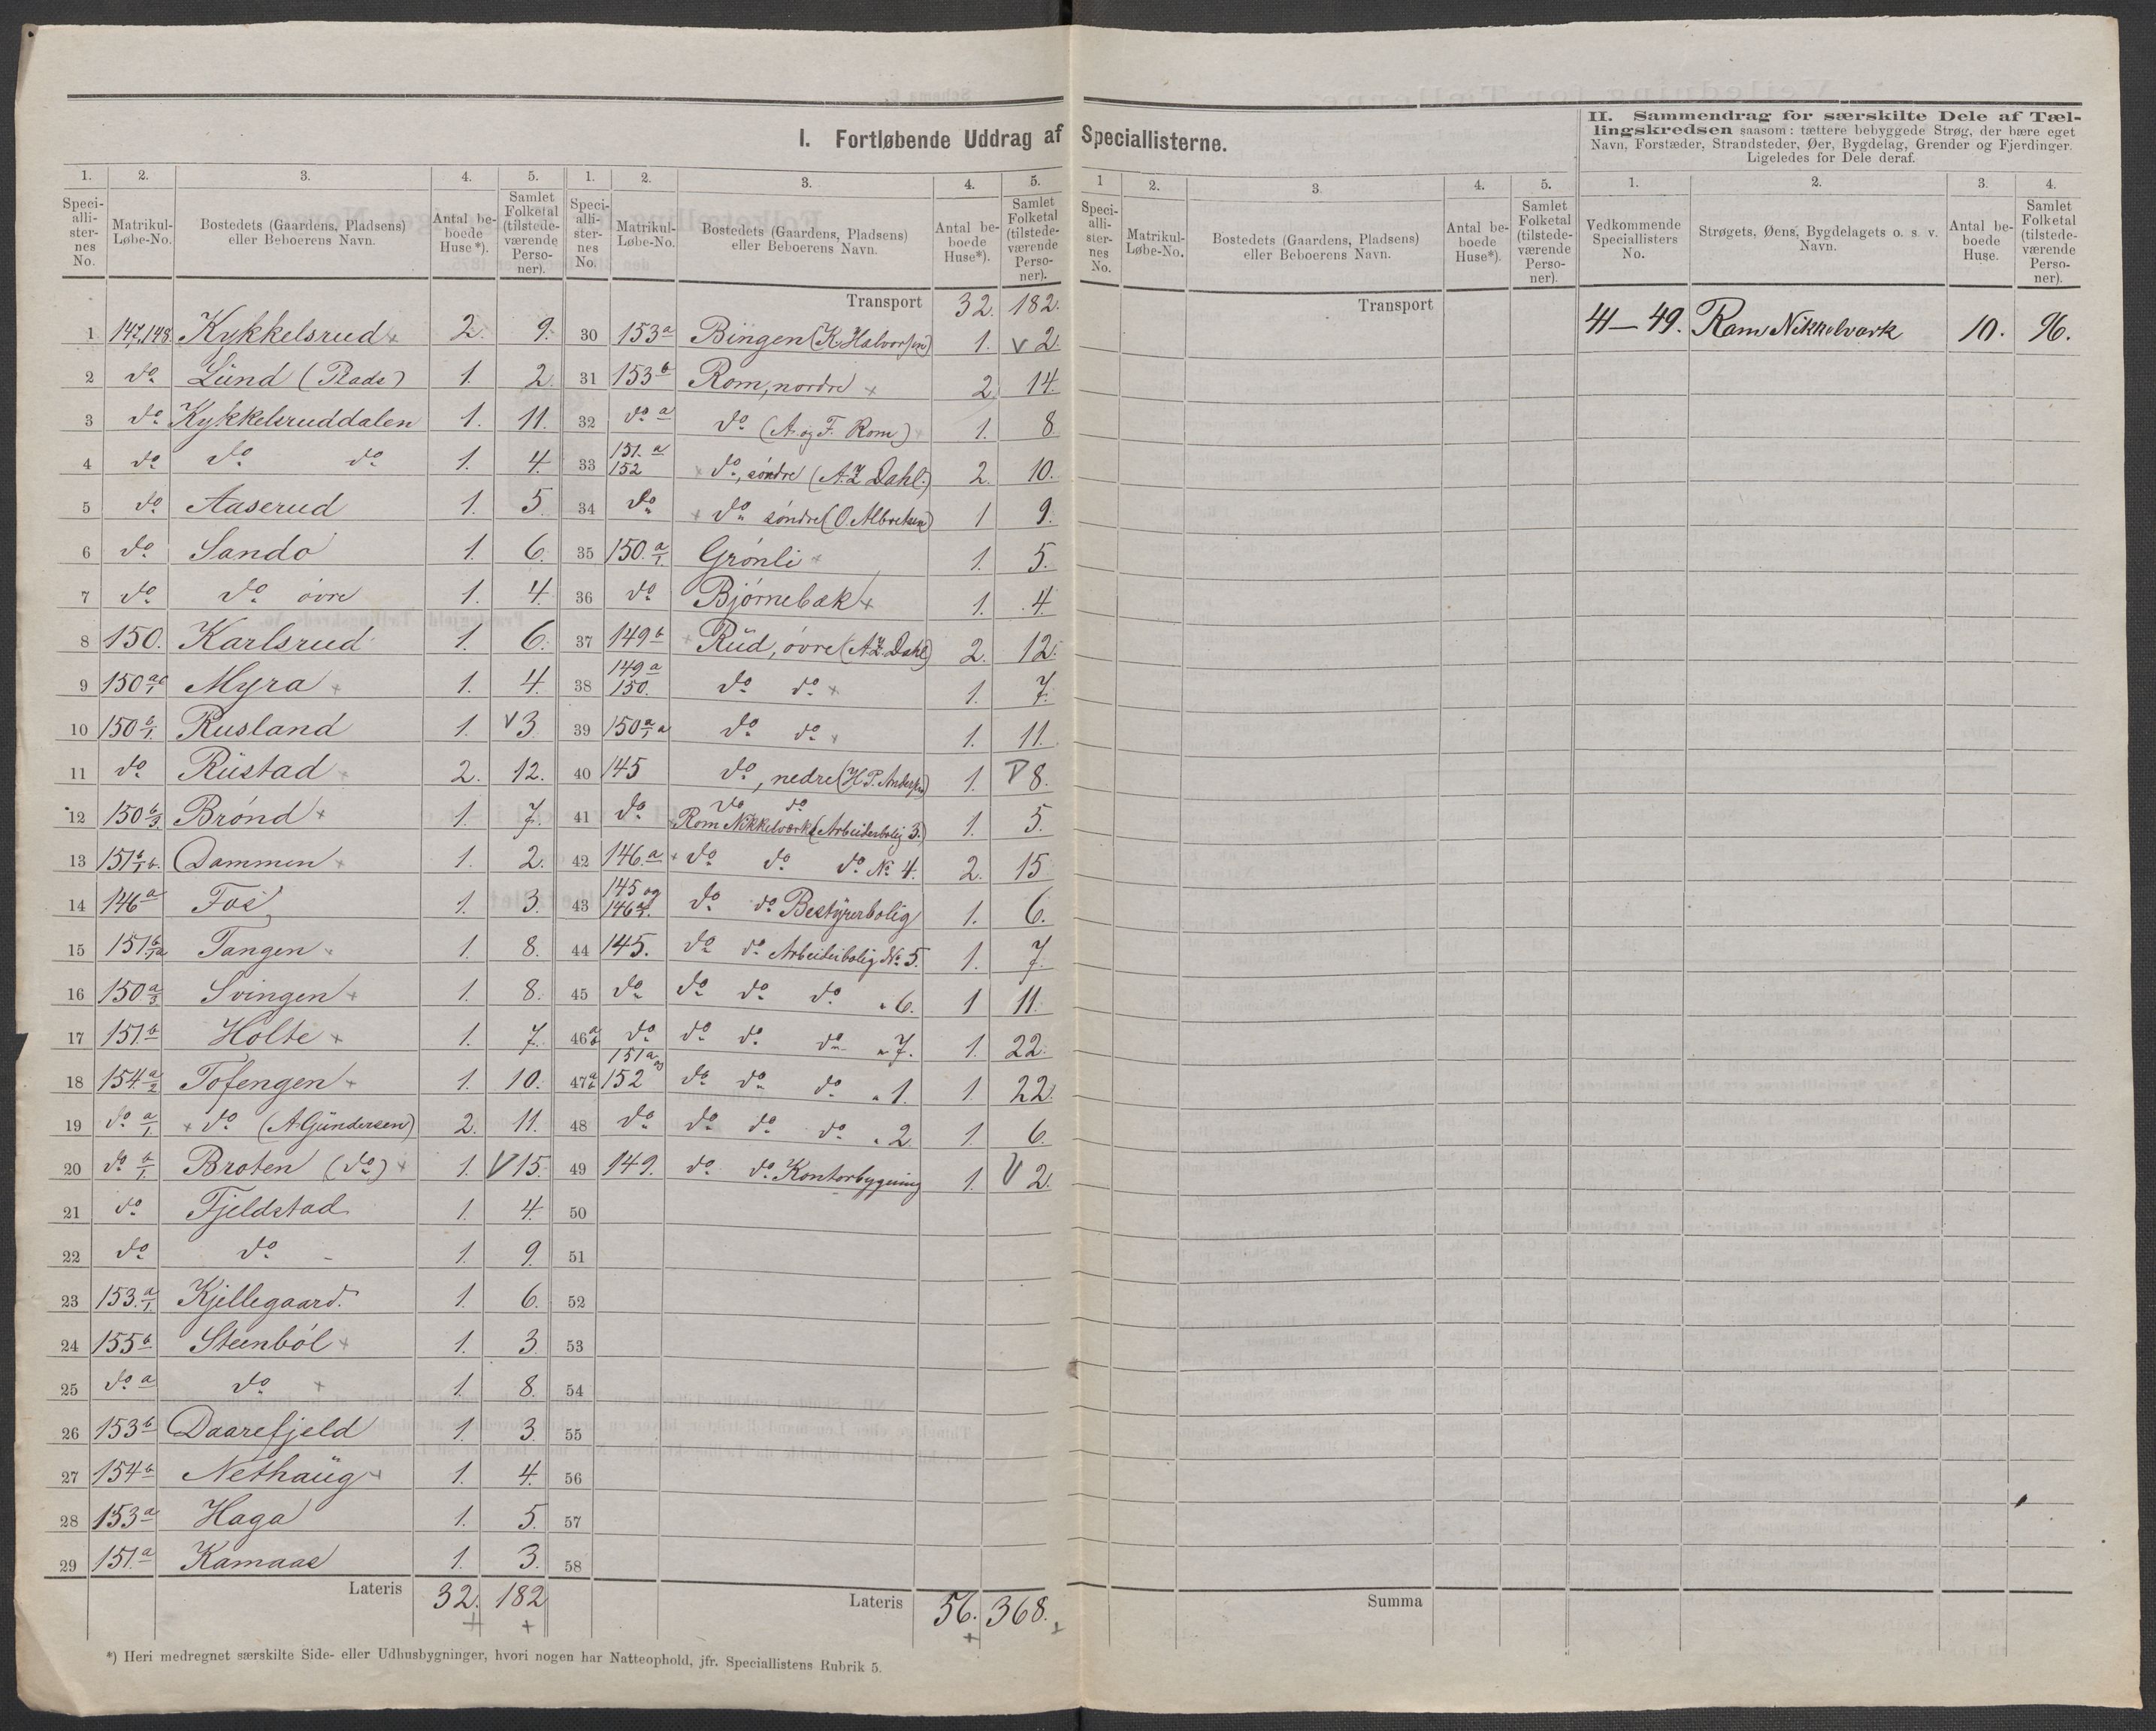 I. Fortløbende Uddrag af Speciallisterne.
1. 2. 3. 4. 5.
Speci-alli-ster-nes No. Matrikul-Løbe-No. Bostedets (Gaardens, Pladsens) eller Beboerens Navn. Antal be-boede Huse*). Samlet Folketal (tilstede-værende Perso-ner).
1 147,148 Kykkelsrud 2. 9.
2 do Lund (Plads) 1. 2
3 do Kykkelsruddalen 1. 11.
4 do do do 1. 4.
5 do Aaserud 1. 5
6 do Sando 1. 6.
7 do do øvre 1. 4.
8 150. Karlsrud 1. 6.
9 150 Myra 1. 4.
10 150 b/1. Rusland 1. v 3
11 do Rustad 2. 12.
12 150 b/3. Brønd 1. 7.
13 151 Dammen 1. 2.
14 146 a Fos 1. 3.
15 151 Tangen 1. 8.
16 150 a/3 Svingen 1. 8.
17 151. b Holte 1. 7.
18 154. a/2 Tofengen 1. 10.
19 do a/1. do (A Gundersen) 2. 11.
20 do b/1. Broten (do) 1. V 15.
21 do Fjeldstad 1. 4.
22 do do 1. 9.
23 153. a/1. Kjellegaard. 1. 6.
24 155 b Steenbøl 1. 3
25 do a do 1. 8.
26 153 b Daarefjeld 1. 3.
27 154 b Nethaug 1. 4.
28 153 a Haga 1. 5.
29 151. a Kamaas 1. 3.
Lateris 32. 182
1. 2. 3. 4. 5.
Speci-alli-ster-nes No. Matrikul-Løbe-No. Bostedets (Gaardens, Pladsens) eller Beboerens Navn. Antal be-boede Huse*). Samlet Folketal (tilstede-værende Perso-ner).
Transport 32. 182.
30 153 a Bingen (K. Halvorsen) 1. v 2.
31 153 b Rom, nordre 2. 14.
32 do a do (A. og F. Rom) 1. 8.
33 151. a 152 do, søndre (A. Z Dahl.) 2. 10.
34 do do søndre (O. Albretsen) 1 9.
35 150. a/1. Grønli 1. 5.
36 do Bjørnebæk 1. 4.
37 149 b Rud, øvre (A. Z. Dahl) 2. 12.
38 149 a 150. do do 1. 7.
39 150 a/1 a do do 1. 11.
40 145 do, nedre (H. P. Andersen) 1. V 8.
41 do do do
Rom Nikkelværk (Arbeiderbolig 3.) 1. 5.
42 146. a do do do No 4. 2. 15
43 145 og 146 do do Bestyrerbolig 1. 6.
44 145. do do Arbeiderbolig No. 5. 1. 7.
45 do do do do " 6. 1 11.
46 a b do do do do " 7. 1. 22.
47 a b 151 a og 152 do do do " 1. 1 22.
48 do do do do " 2 1 6.
49 149. do do Kontorbygning 1. V 2.
50
51
52
53
54
55
56
57
58
Lateris 56. 368.
*) Heri medregnet særskilte Side- eller Udhusbygninger, hvori nogen har Natteophold, jfr. Speciallistens Rubrik 5.
1 2. 3. 4. 5.
Speci-alli-ster-nes No. Matrikul-Løbe-No. Bostedets (Gaardens, Pladsens) eller Beboerens Navn. Antal be-boede Huse*). Samlet Folketal (tilstede-værende Perso-ner).
Transport
Summa
II. Sammendrag for særskilte Dele af Tæl-
lingskredsen saasom: tættere bebyggede Strøg, der bære eget
Navn, Forstæder, Strandsteder, Øer, Bygdelag, Grender og Fjerdinger.
Ligeledes for Dele deraf.
1. 2. 3. 4.
Vedkommende Speciallisters No. Strøgets, Øens, Bygdelagets o. s. v. Navn. Antal be-boede Huse. Samlet Folketal (tilstede-værende Perso-ner).
41—49. Rom Nikkelværk 10. 96.